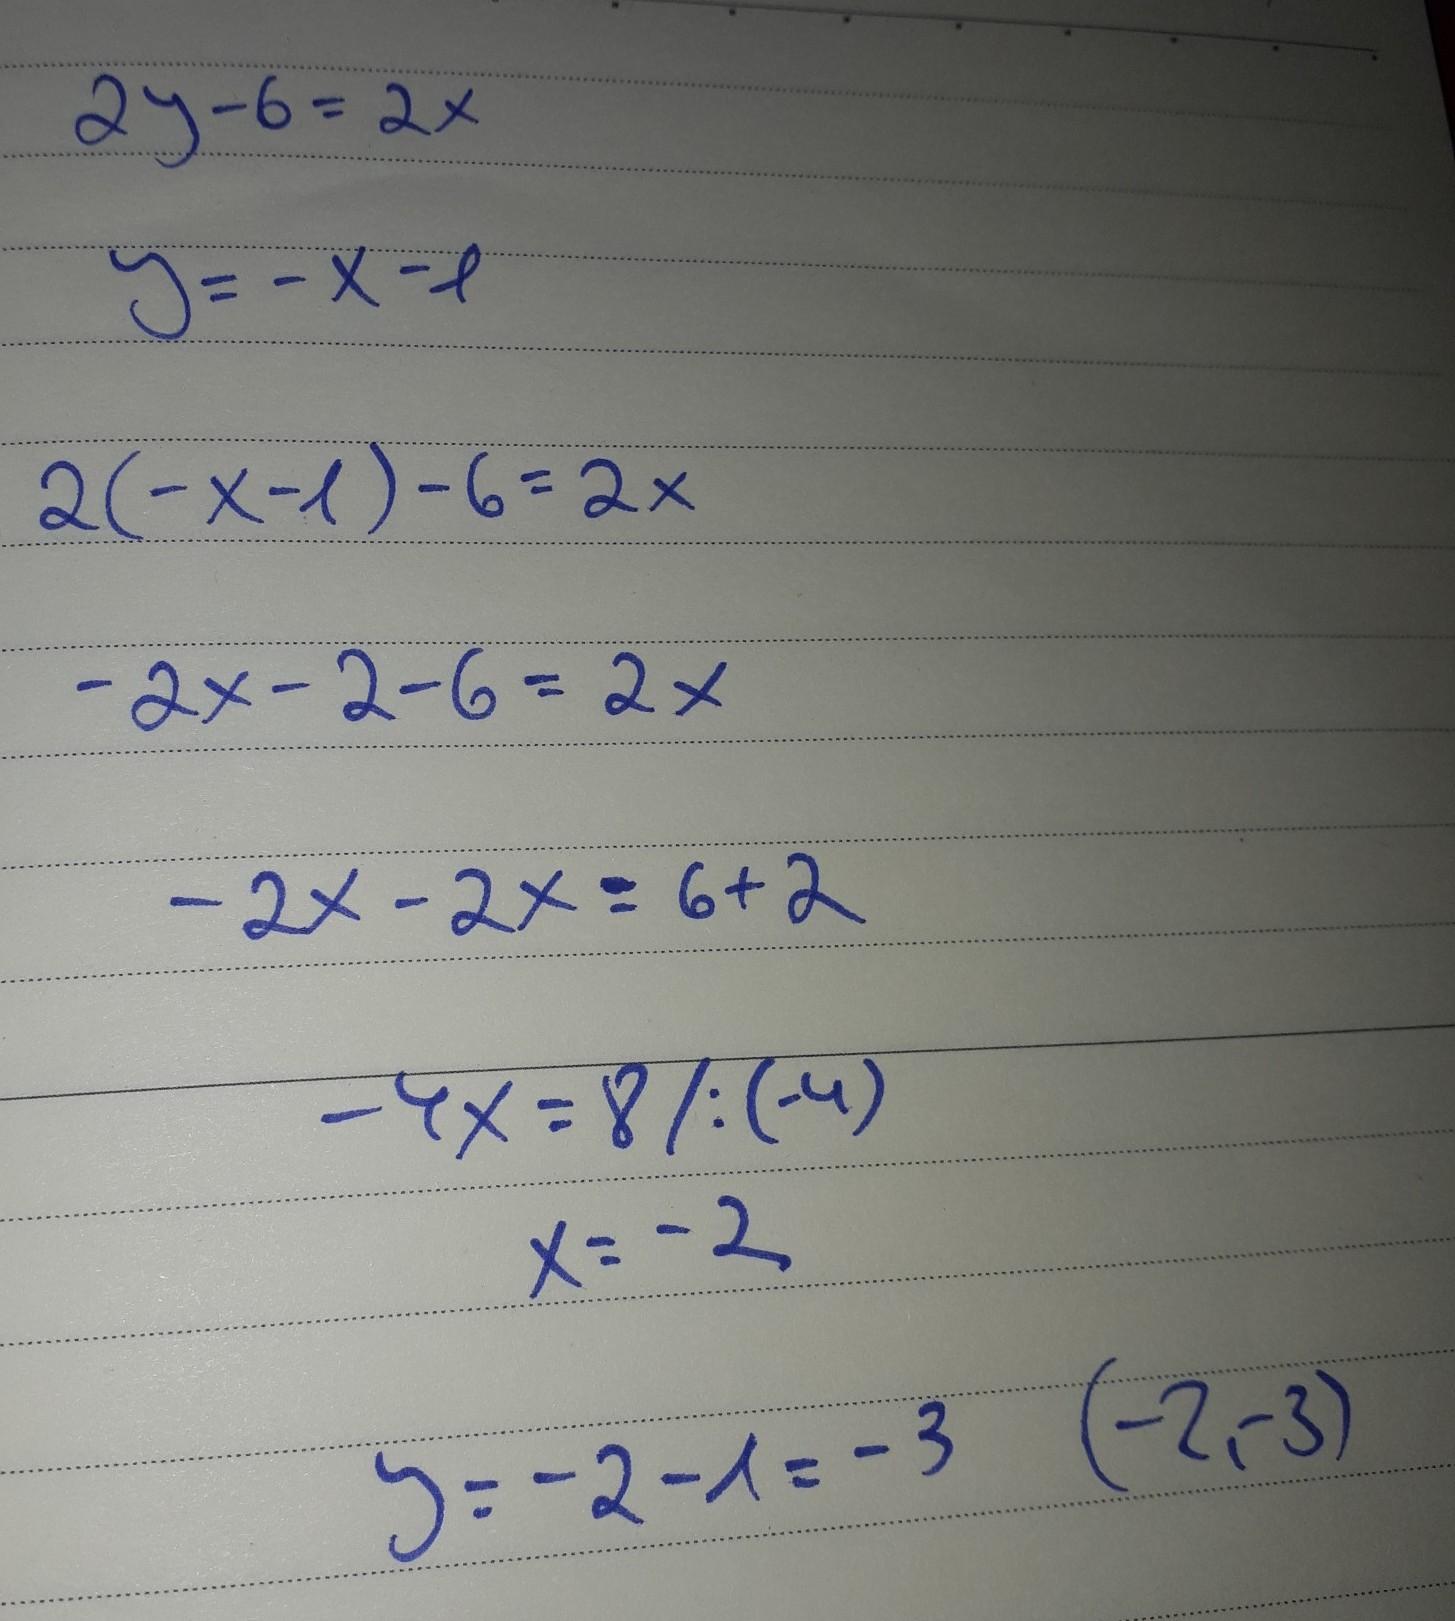 2y-6=2x
y=-x-1
2(-x-1)-6=2x
-2x-2-6=2x
-2x-2x=6+2
-4x=8/:(-4)
x=-2
y=-2-1=-3 (-2,-3)